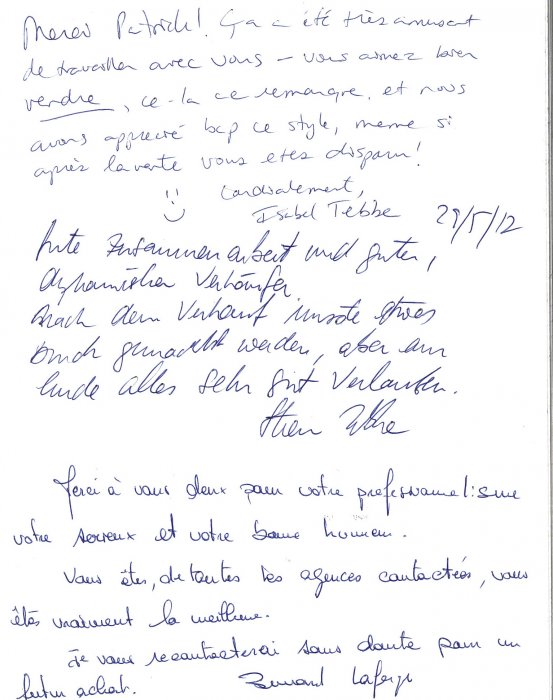 Merci Patrick! Ça a été très amusant
de travailler avec vous – vous aimez bien
vendre, ce-la ce remarque, et nous
avons apprecié bcp ce style, meme si
après la vente vous etes disparu!
:) Cordialement,
Isabel Tebbe 29/5/12
Gute Zusammenarbeit und guter,
dynamischer Verkäufer.
Nach dem Verkauf musste etwas
Druck gemacht werden, aber am
Ende alles sehr gut verlaufen.
Tebbe
Merci à vous deux pour votre professionnalisme
votre serieux et votre bonne humeur.
Vous êtes, de toutes les agences contactées, vous
êtes vraiment la meilleure.
Je vous recontacterai sans doute pour un
futur achat. Bernard Laforge